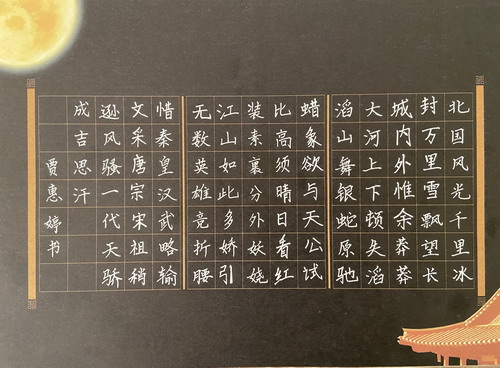 北国风光千里冰
封万里雪飘望长
城内外惟余莽莽
大河上下顿失滔
滔山舞银蛇原驰
蜡象欲与天公试
比高须晴日看红
装素裹分外妖娆
江山如此多娇引
无数英雄竞折腰
惜秦皇汉武略输
文采唐宗宋祖稍
逊风骚一代天骄
成吉思汗
贾惠婷书